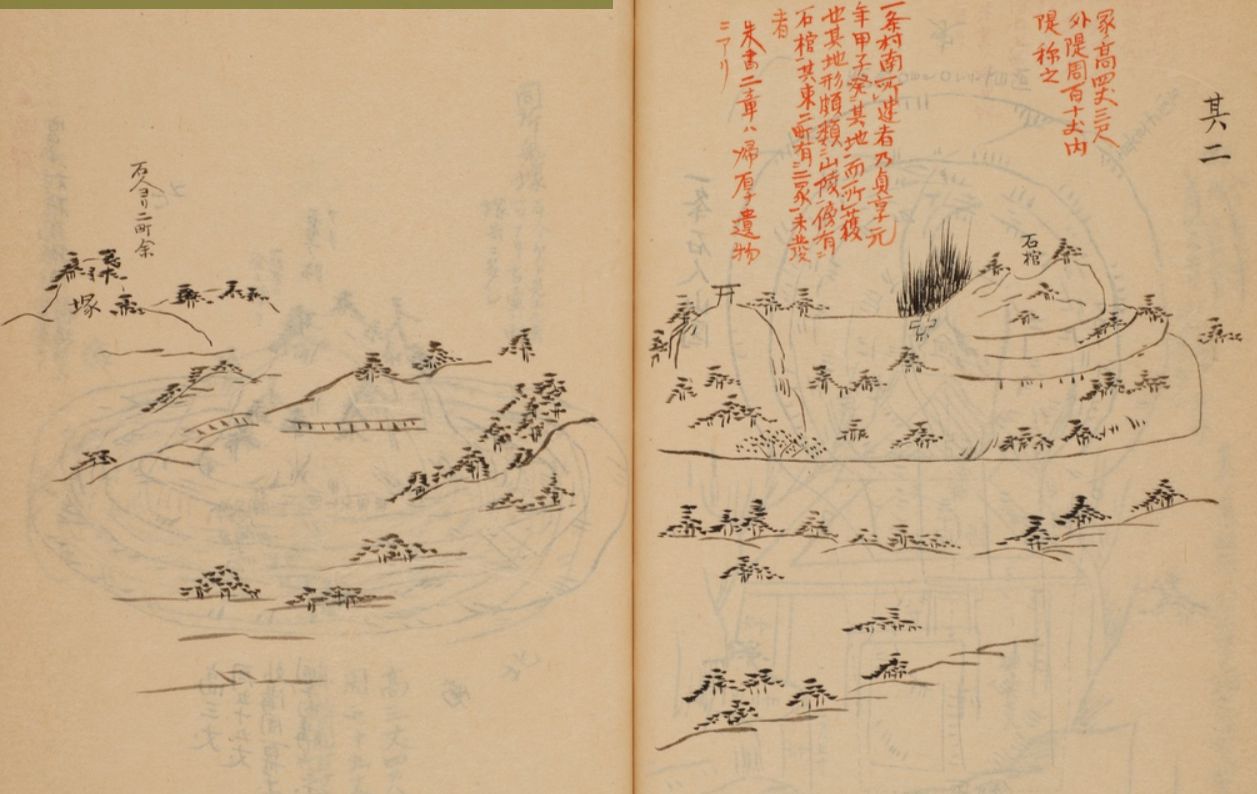 其二
冢高四丈三尺
外隄周百十丈内
隄称之
一条村南所建者乃貞享元
年甲子発其地而所獲
也其地形頗類山陵傍有
石棺其東二町有二冢未発
者
朱書二章ハ帰厚遺物
ニアリ
石棺
石人ヨリ二町余
塚